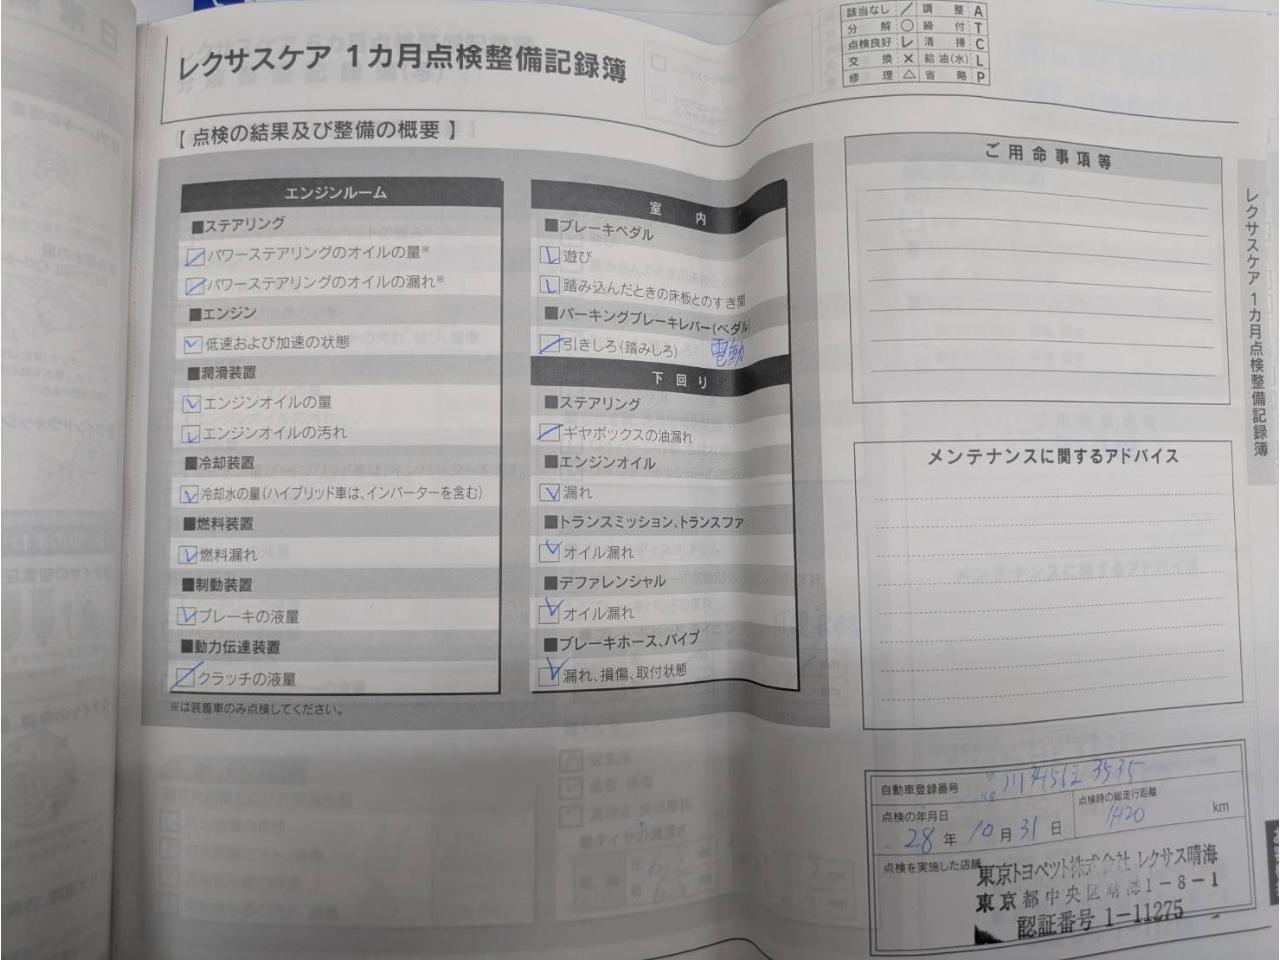 レクサスケア 1カ月点検整備記録簿
該当なし ／ 調整 A
分解 ○ 締付 T
点検良好 レ 清掃 C
交換 × 給油(水) L
修理 △ 省略 P
【 点検の結果及び整備の概要 】
エンジンルーム
■ステアリング
パワーステアリングのオイルの量※
パワーステアリングのオイルの漏れ※
■エンジン
低速および加速の状態
■潤滑装置
エンジンオイルの量
エンジンオイルの汚れ
■冷却装置
冷却水の量(ハイブリッド車は、インバーターを含む)
■燃料装置
燃料漏れ
■制動装置
ブレーキの液量
■動力伝達装置
クラッチの液量
※は装着車のみ点検してください。
室内
■ブレーキペダル
遊び
踏み込んだときの床板とのすき間
■パーキングブレーキレバー(ペダル)
引きしろ(踏みしろ) 電動
下回り
■ステアリング
ギヤボックスの油漏れ
■エンジンオイル
漏れ
■トランスミッション、トランスファ
オイル漏れ
■デファレンシャル
オイル漏れ
■ブレーキホース、パイプ
漏れ、損傷、取付状態
ご用命事項等
メンテナンスに関するアドバイス
自動車登録番号
点検の年月日
28年10月31日
点検時の総走行距離
1420 km
点検を実施した店舗
東京トヨペット株式会社 レクサス晴海
東京都中央区晴海1-8-1
認証番号 1-11275
レクサスケア 1カ月点検整備記録簿